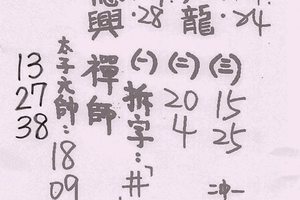 13
27
38
太子元帥：18
09
興
禪師
28
龍
24
(一)
拆字：「井
(二)
20
4
(三)
15
25
二冲一